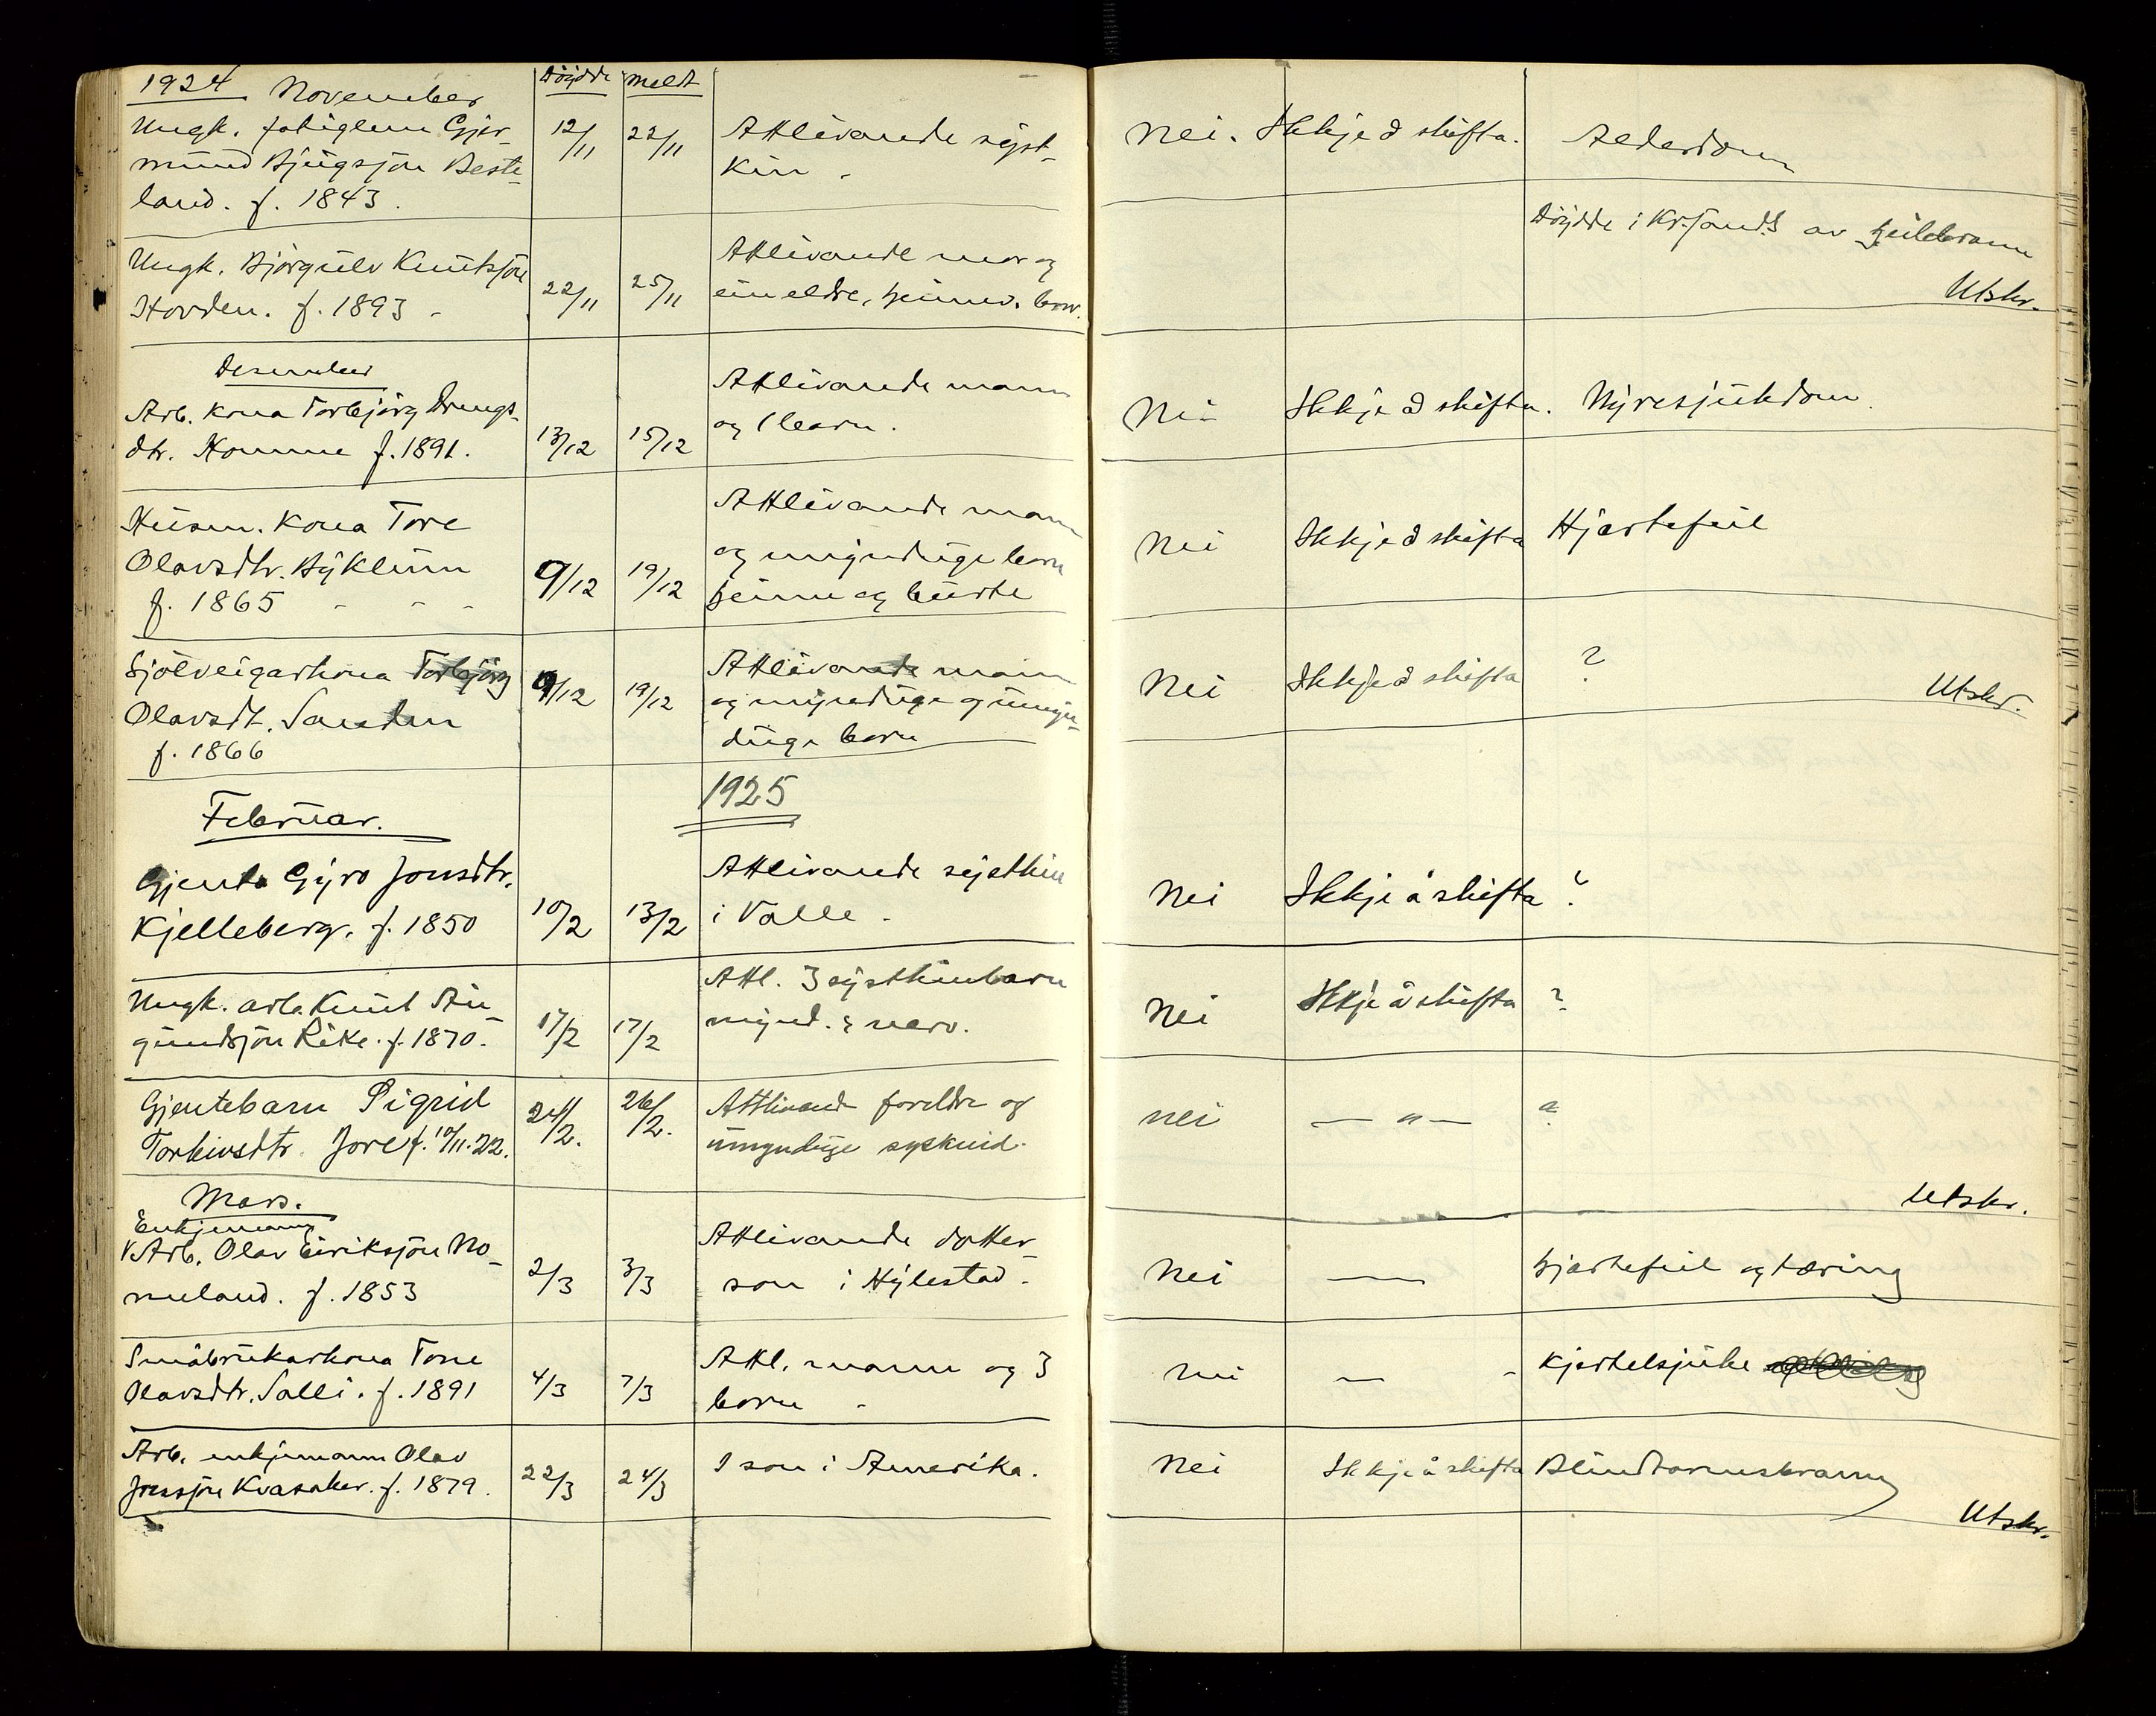 1924 November Döydde meldt
Ungk. fatiglem Gjer-
mund Bjugsjon Beste-
land. f. 1843.
12/11 22/11
Attlivande syst-
kin.
Nei. Ikkje å skifta. Alderdom
Ungk. Björgulv Knutsjon
Hovden. f. 1893
22/11 25/11
Attlivande mor og
ein eldre, heimev. bror.
Döydde i Kr.sand S av heilebrann
Utskr.
Desember
Arb. kona Torbjörg Drengs-
dtr. Homme f. 1891.
13/12 15/12
Attlivande mann
og 1 barn.
Nei Ikkje å skifta. Nyresjukdom
Husm. kona Tore
Olavsdtr. Byklum
f. 1865
9/12 19/12
Attlivande mann
og myndige born
heime og burte
Nei Ikkje å skifta Hjartefeil
Sjölveigarkona Torbjörg
Olavsdt. Sanden
f. 1866
9/12 19/12
Attlivande mann
og myndige og umyn-
dige born
Nei Ikkje å skifta ?
Utskr.
1925
Februar.
Gjenta Gyro Jonsdtr.
Kjelleberg. f. 1850
10/2 13/2
Attlivande systkin
i Valle.
Nei Ikkje å skifta ?
Ungk. arb. Knut Au-
gundsjon Rike. f. 1870.
17/2 17/2
Attl. 3 systkinbarn
mynd. & nerv.
Nei Ikkje å skifta ?
Gjentebarn Sigrid
Torleivsdtr. Jore f. 10/11.22.
24/2. 26/2.
Attlivande foreldre og
umyndige syskind.
nei — " — ?
Utskr.
Mars.
Enkjemann
Arb. Olav Eiriksjon No-
meland. f. 1853
2/3 3/3
Attlivande dotter-
son i Hylestad.
Nei — hjartefeil og tæring
Småbrukarkona Tone
Olavsdtr. Salli. f. 1891
4/3 7/3
Attl. mann og 3
born
nei — - kjertelsjuke
Arb. enkjemann Olav
Jonssjon Kvasaker. f. 1879.
22/3 24/3
1 son i Amerika.
Nei Ikkje å skifta Blindtarmsbrann
Utskr.